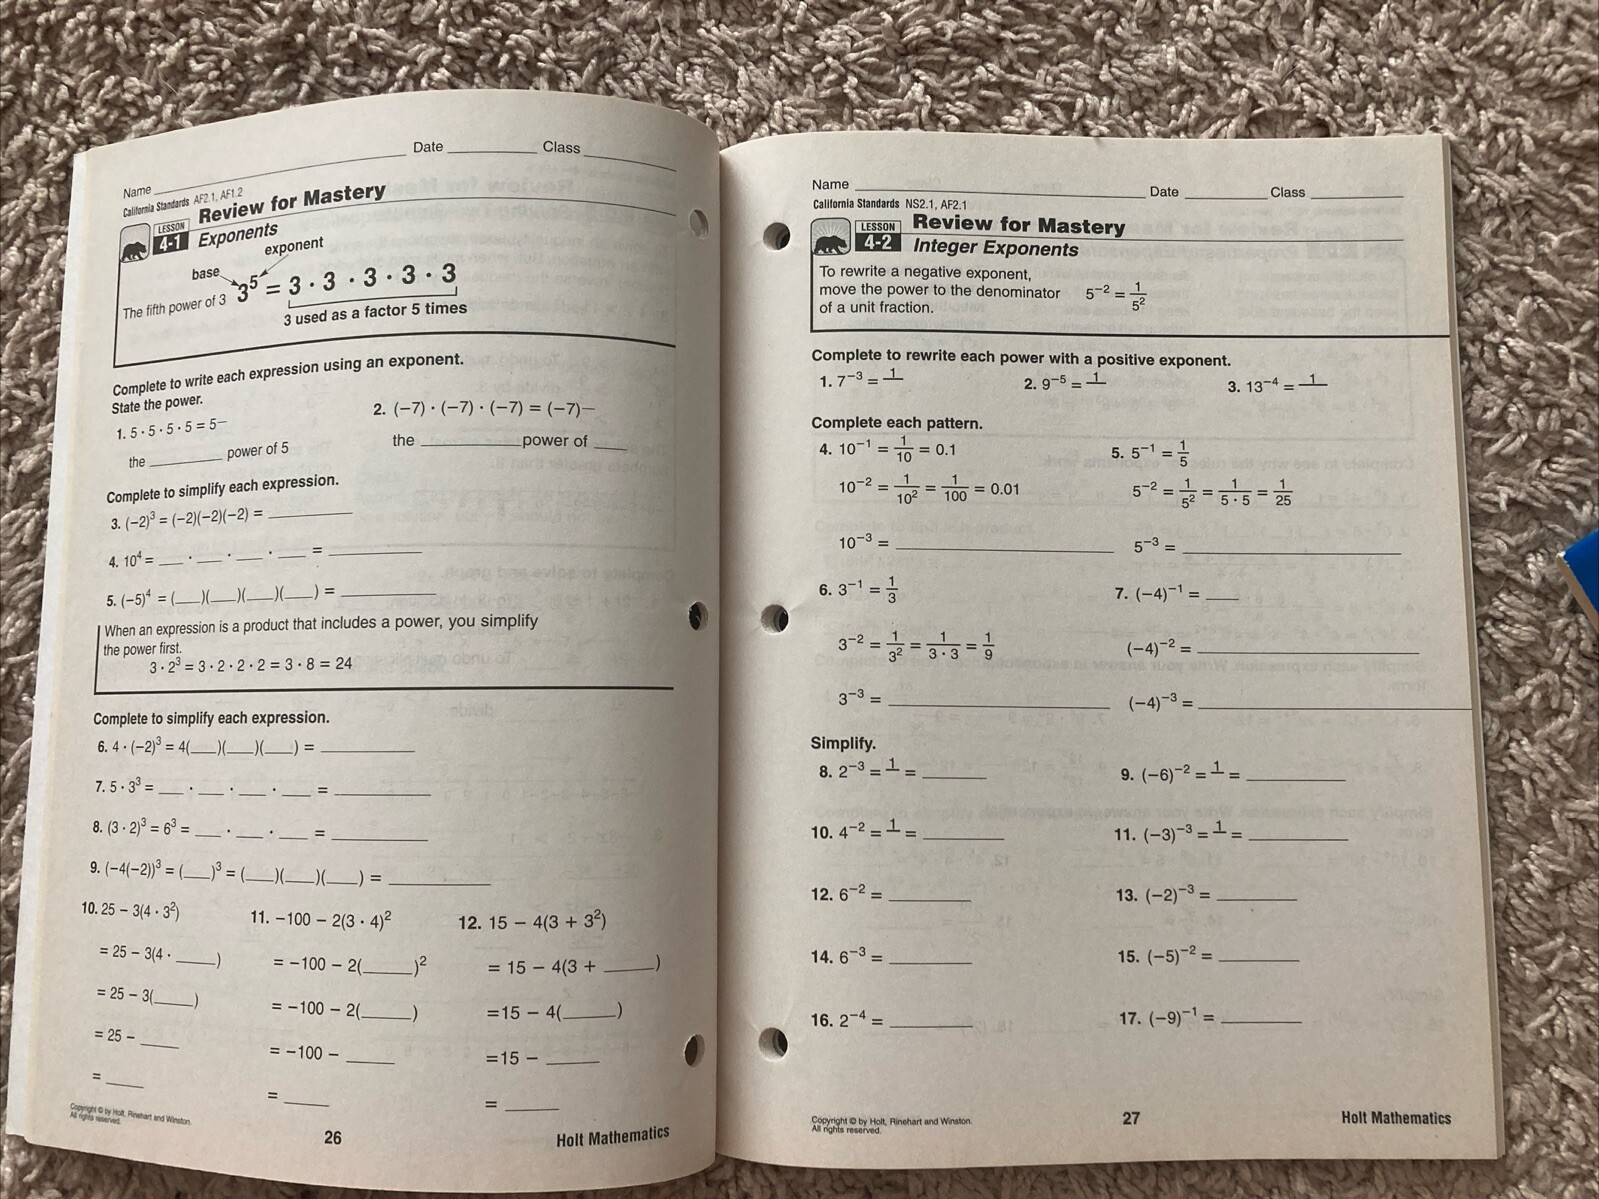 Name ____ Date ____ Class ____
California Standards AF2.1, AF1.2
LESSON 4-1 Review for Mastery
Exponents
base exponent
The fifth power of 3 3⁵ = 3 · 3 · 3 · 3 · 3
3 used as a factor 5 times
Complete to write each expression using an exponent.
State the power.
1. 5 · 5 · 5 · 5 = 5—
the ____ power of 5
2. (−7) · (−7) · (−7) = (−7)—
the ____ power of ____
Complete to simplify each expression.
3. (−2)³ = (−2)(−2)(−2) = ____
4. 10⁴ = ___ · ___ · ___ · ___ = ____
5. (−5)⁴ = (___)(___)(___)(___) = ____
When an expression is a product that includes a power, you simplify
the power first.
3 · 2³ = 3 · 2 · 2 · 2 = 3 · 8 = 24
Complete to simplify each expression.
6. 4 · (−2)³ = 4(___)(___)(___) = ____
7. 5 · 3³ = ___ · ___ · ___ · ___ = ____
8. (3 · 2)³ = 6³ = ___ · ___ · ___ = ____
9. (−4(−2))³ = (___)³ = (___)(___)(___) = ____
10. 25 − 3(4 · 3²)
= 25 − 3(4 · ____)
= 25 − 3(____)
= 25 − ____
= ____
11. −100 − 2(3 · 4)²
= −100 − 2(____)²
= −100 − 2(____)
= −100 − ____
= ____
12. 15 − 4(3 + 3²)
= 15 − 4(3 + ____)
=15 − 4(____)
=15 − ____
= ____
Copyright © by Holt, Rinehart and Winston.
All rights reserved.
26
Holt Mathematics
Name ____ Date ____ Class ____
California Standards NS2.1, AF2.1
LESSON 4-2 Review for Mastery
Integer Exponents
To rewrite a negative exponent,
move the power to the denominator
of a unit fraction.
5⁻² = 1/5²
Complete to rewrite each power with a positive exponent.
1. 7⁻³ = 1/
2. 9⁻⁵ = 1/
3. 13⁻⁴ = 1/
Complete each pattern.
4. 10⁻¹ = 1/10 = 0.1
10⁻² = 1/10² = 1/100 = 0.01
10⁻³ = ____
5. 5⁻¹ = 1/5
5⁻² = 1/5² = 1/5 · 5 = 1/25
5⁻³ = ____
6. 3⁻¹ = 1/3
3⁻² = 1/3² = 1/3 · 3 = 1/9
3⁻³ = ____
7. (−4)⁻¹ = ____
(−4)⁻² = ____
(−4)⁻³ = ____
Simplify.
8. 2⁻³ = 1/ = ____
9. (−6)⁻² = 1/ = ____
10. 4⁻² = 1/ = ____
11. (−3)⁻³ = 1/ = ____
12. 6⁻² = ____
13. (−2)⁻³ = ____
14. 6⁻³ = ____
15. (−5)⁻² = ____
16. 2⁻⁴ = ____
17. (−9)⁻¹ = ____
Copyright © by Holt, Rinehart and Winston.
All rights reserved.
27
Holt Mathematics